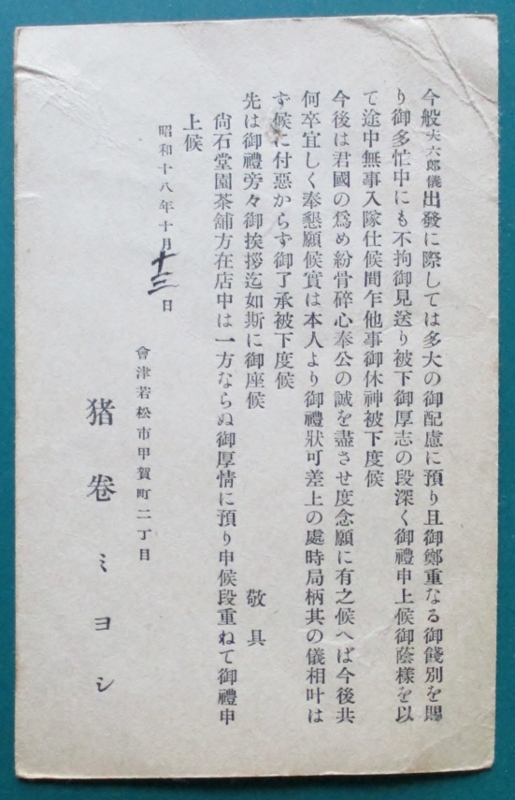 今般夫六郎儀出發に際しては多大の御配慮に預り且御鄭重なる御餞別を賜
り御多忙中にも不拘御見送り被下御厚志の段深く御禮申上候御蔭樣を以
て途中無事入隊仕候間乍他事御休神被下度候
今後は君國の爲め紛骨碎心奉公の誠を盡させ度念願に有之候へば今後共
何卒宜しく奉懇願候實は本人より御禮狀可差上の處時局柄其の儀相叶は
ず候に付惡からず御了承被下度候
先は御禮旁々御挨拶迄如斯に御座候
敬具
尙石堂園茶舗方在店中は一方ならぬ御厚情に預り申候段重ねて御禮申
上候
昭和十八年十月十三日
會津若松市甲賀町二丁目
猪卷ミヨシ